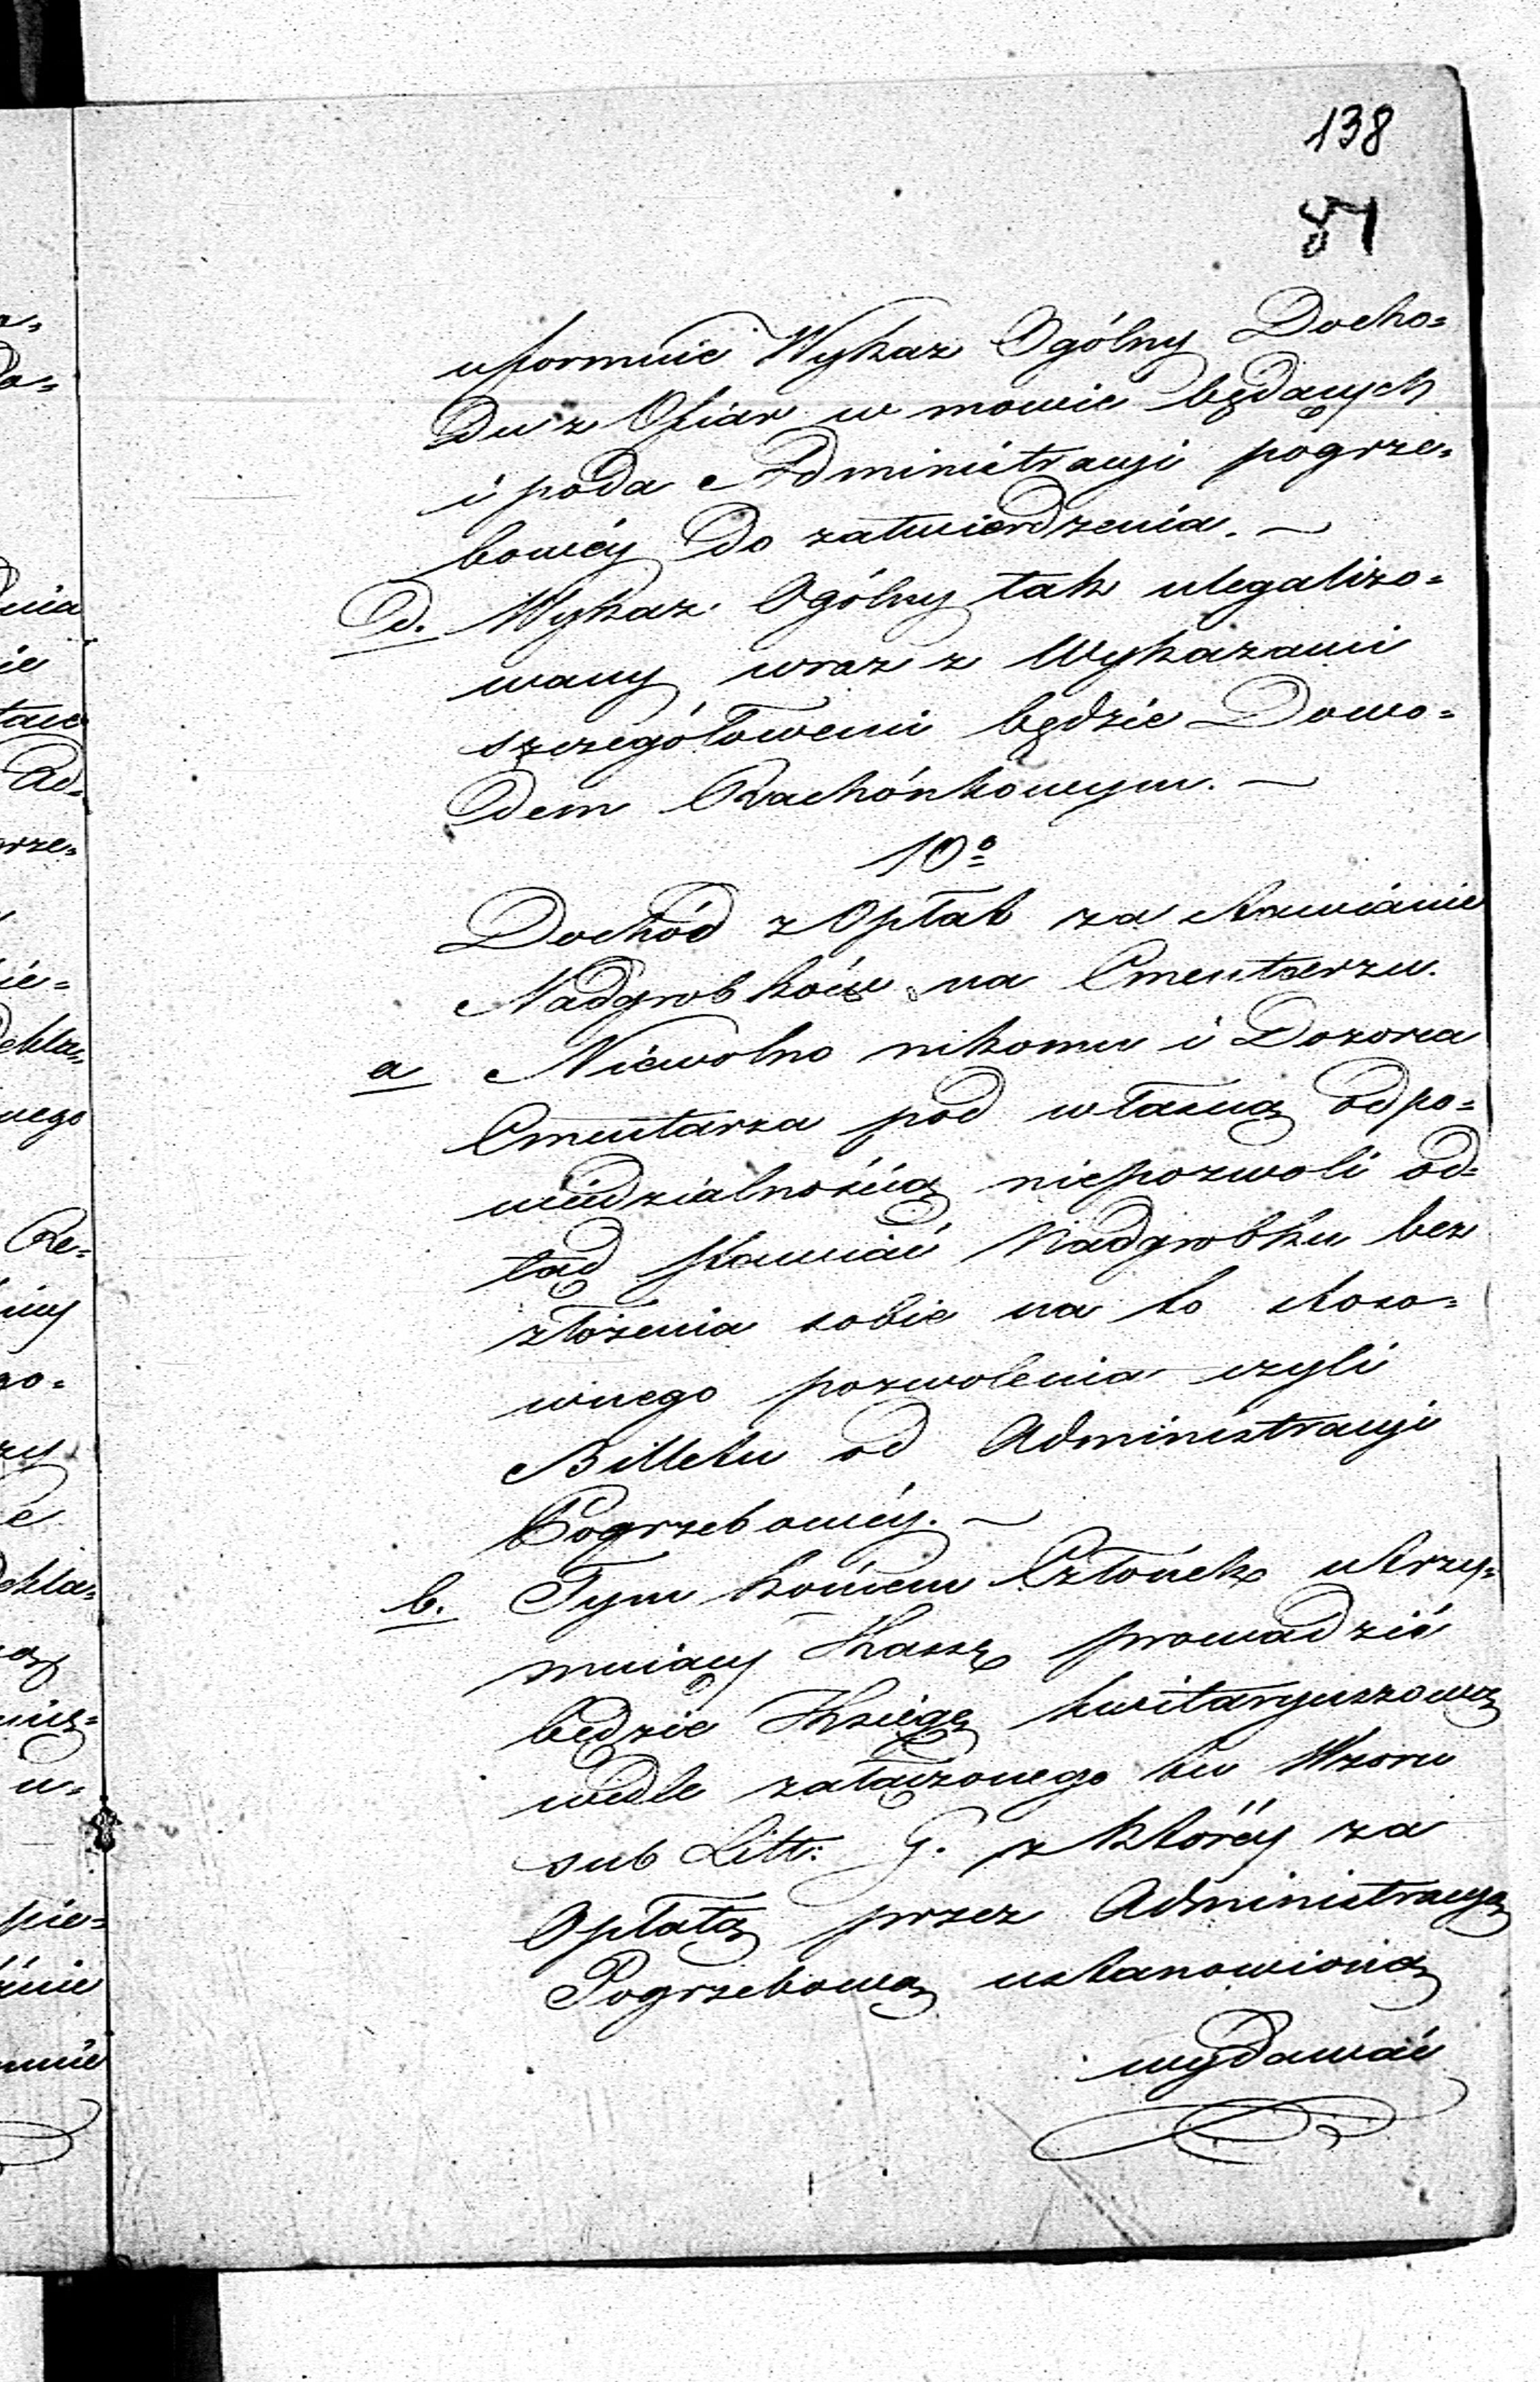 138
81
uformuie Wykaz Ogólny Docho=
du z Ofiar w mowie będących
i poda Administracyi pogrze=
bowéy do zatwierdzenia. ~
d. Wykaz Ogólny tak ulegalizo=
wany wraz z Wykazami
szczegółowemi będzie Dowo=
dem Rachónkowym. ~
10o
Dochód z Opłat za stawianie
Nadgrobków na Cmentarzu.
a Niewolno nikomu i Dozorca
Cmentarza pod własną odpo=
wiedzialnością niepozwoli od=
tąd stawiać Nadgrobku bez
złożenia sobie na to stoso=
wnego pozwolenia czyli
Billetu od Administracyi
Pogrzebowéy. ~
b. Tym końcem Członek utrzy=
muiący Kassę prowadzić
będzie Księgę kwitaryuszową
wedle załączonego tu Wzoru
sub Litt: G. z któréy za
Opłatą przez Administracyą
Pogrzebową ustanowioną
wydawać